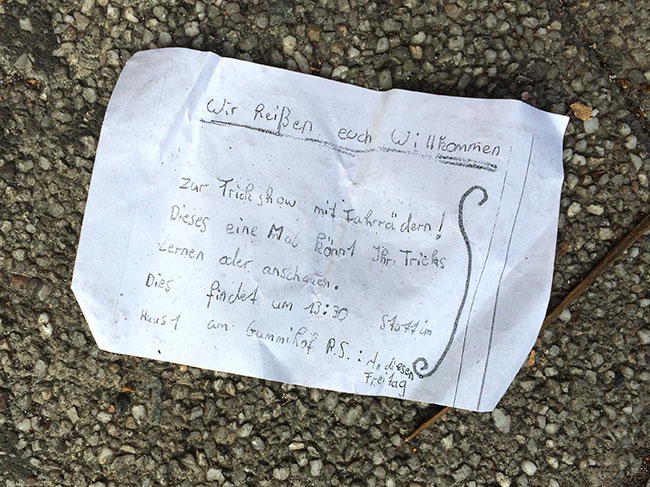 Wir heißen euch Willkommen
zur Trickshow mit Fahrrädern!
Dieses eine Mal könnt ihr, Tricks
lernen oder anschauen.
Dies findet um 13:30 statt im
Haus 1 am Gummihof P.S.: diesen
Freitag